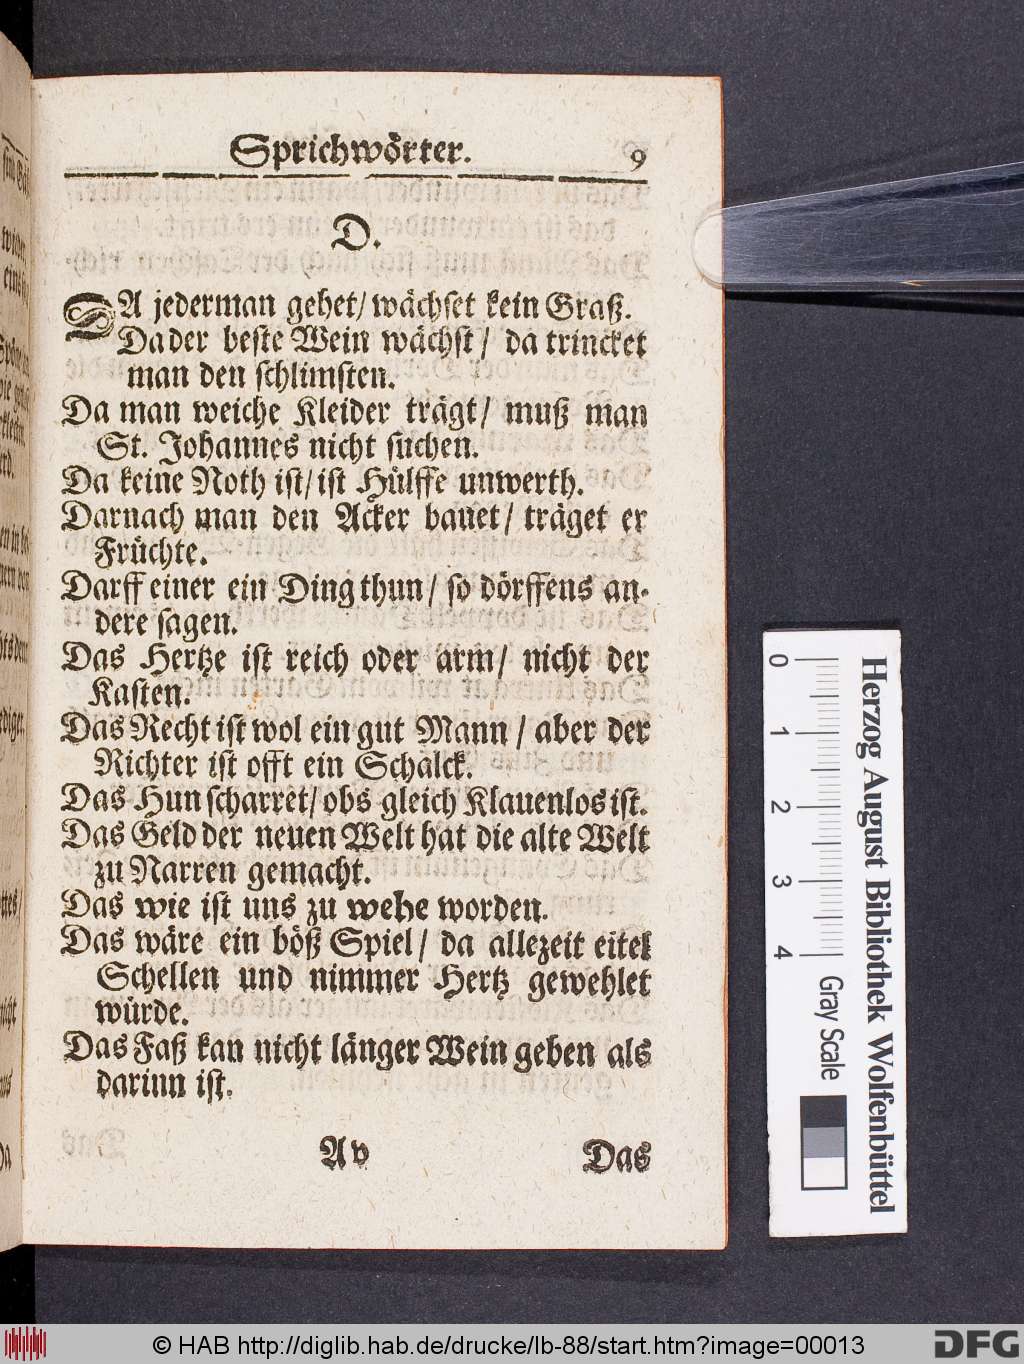 Sprichwörter. 9
D.
DA jederman gehet/ wächset kein Graß.
Da der beste Wein wächst/ da trincket
man den schlimsten.
Da man weiche Kleider trägt/ muß man
St. Johannes nicht suchen.
Da keine Noth ist/ ist Hülffe unwerth.
Darnach man den Acker bauet/ träget er
Früchte.
Darff einer ein Ding thun/ so dörffens an-
dere sagen.
Das Hertze ist reich oder arm/ nicht der
Kasten.
Das Recht ist wol ein gut Mann/ aber der
Richter ist offt ein Schalck.
Das Hun scharret/ obs gleich Klauenlos ist.
Das Geld der neuen Welt hat die alte Welt
zu Narren gemacht.
Das wie ist uns zu wehe worden.
Das wäre ein böß Spiel/ da allezeit eitel
Schellen und nimmer Hertz gewehlet
würde.
Das Faß kan nicht länger Wein geben als
darinn ist.
A v Das
0 1 2 3 4 Gray Scale
Herzog August Bibliothek Wolfenbüttel
© HAB http://diglib.hab.de/drucke/lb-88/start.htm?image=00013 DFG